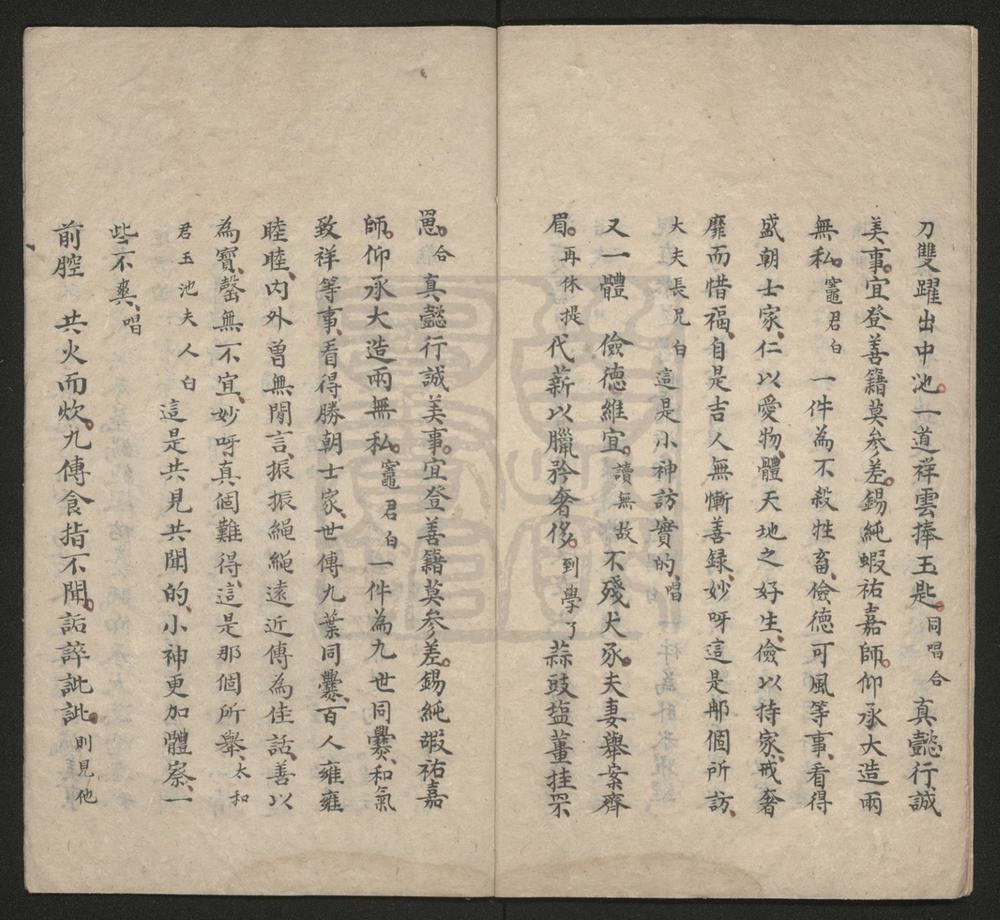 刀雙躍出中池一道祥雲捧玉匙同唱合真懿行誠
美事宜登善籍莫參差錫純蝦祐嘉師仰承大造兩
無私竈君白一件為不殺牲畜儉德可風等事看得
盛朝士家仁以愛物體天地之好生儉以持家戒奢
靡而惜福自是吉人無慚善録妙呀這是那個所訪
大夫長兄白這是小神訪實的唱
又一體儉德維宜讀無故不殘犬豕夫妻舉案齊
眉再休提代薪以臘矜奢侈到學了蒜豉塩薑挂罘
罳合真懿行誠美事宜登善籍莫參差錫純嘏祐嘉
師仰承大造兩無私竈君白一件為九世同爨和氣
致祥等事看得勝朝士家世傳九葉同爨百人雍雍
睦睦內外曽無閒言振振繩繩遠近傳為佳話善以
為寳罄無不宜妙呀真個難得這是那個所舉太和
君玉池夫人白這是共見共聞的小神更加體察一
些不爽唱
前腔共火而炊九傳食指不聞詬誶訿訿則見他